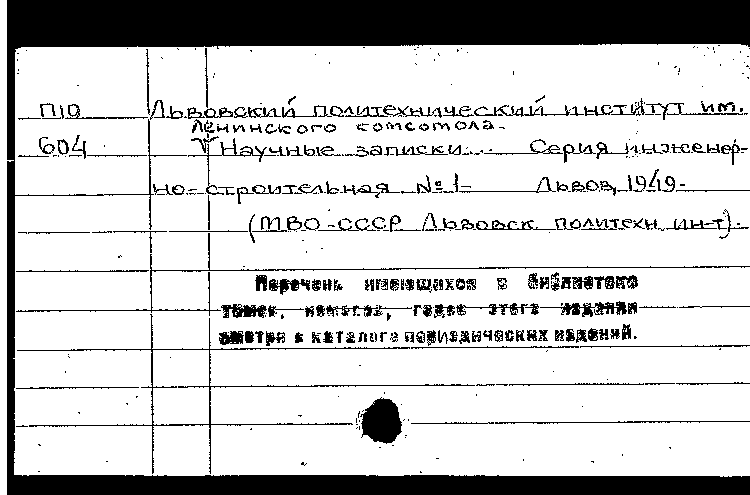 П10 Львовский политехнический институт им.
Ленинского комсомола.
604 Научные записки... Серия инженер-
но-строительная №1- Львов, 1949-
(МВО-СССР Львовск. политехн. ин-т).
Перечень имеющихся в библиотеке
томов, годов этого издания
смотри в каталоге периодических изданий.